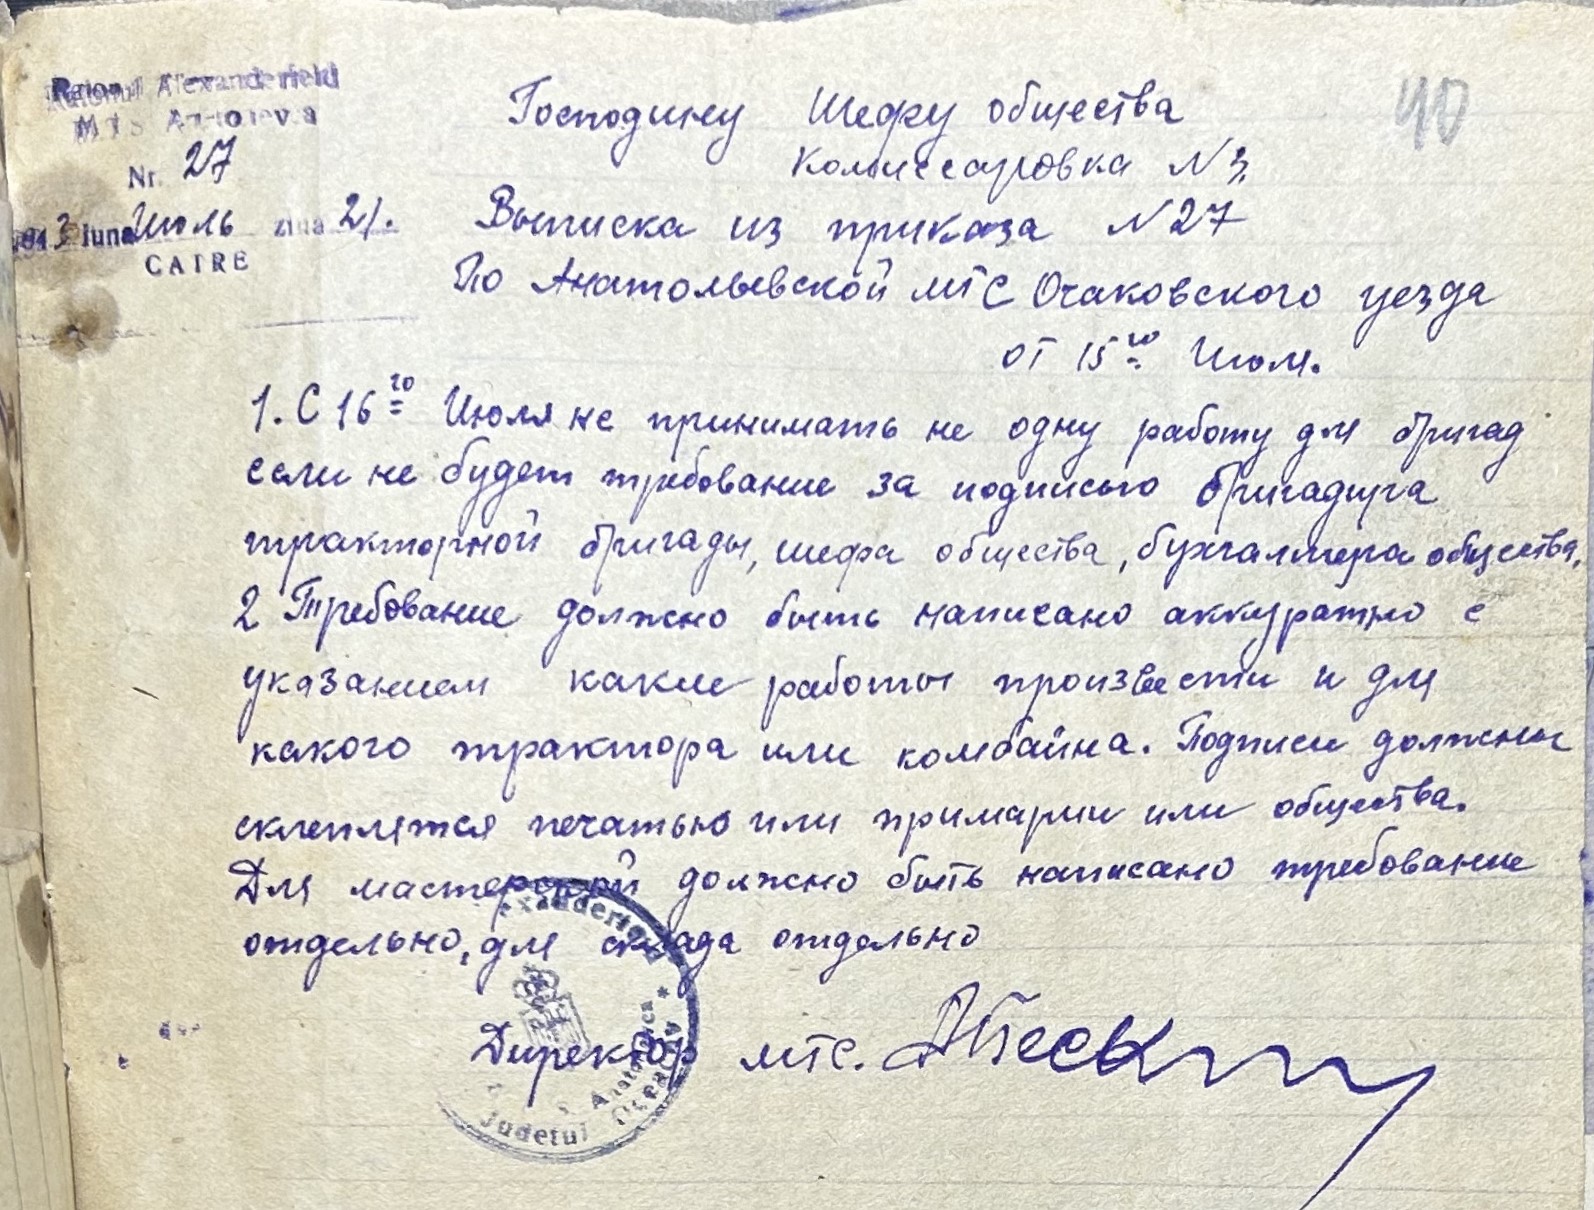 Raionul Alexanderfeld
MTS
Nr. 27
1943 luna Июль ziua 21.
CATRE
40
Господину Шефу общества
Комиссаровка N 3.
Выписка из приказа N 27
По Анатольевской МТС Очаковского уезда
от 15го Июля.
1. С 16го Июля не принимать не одну работу для бригад
если не будет требование за подписью бригадира
тракторной бригады, шефа общества, бухгалтера общества.
2 Требование должно быть написано аккуратно с
указанием какие работы произвести и для
какого трактора или комбайна. Подписи должны
склеплятся печатью или примарии или общества.
Для мастерской должно быть написано требование
отдельно, для склада отдельно
Директор МТС.
Judetul Oceacov